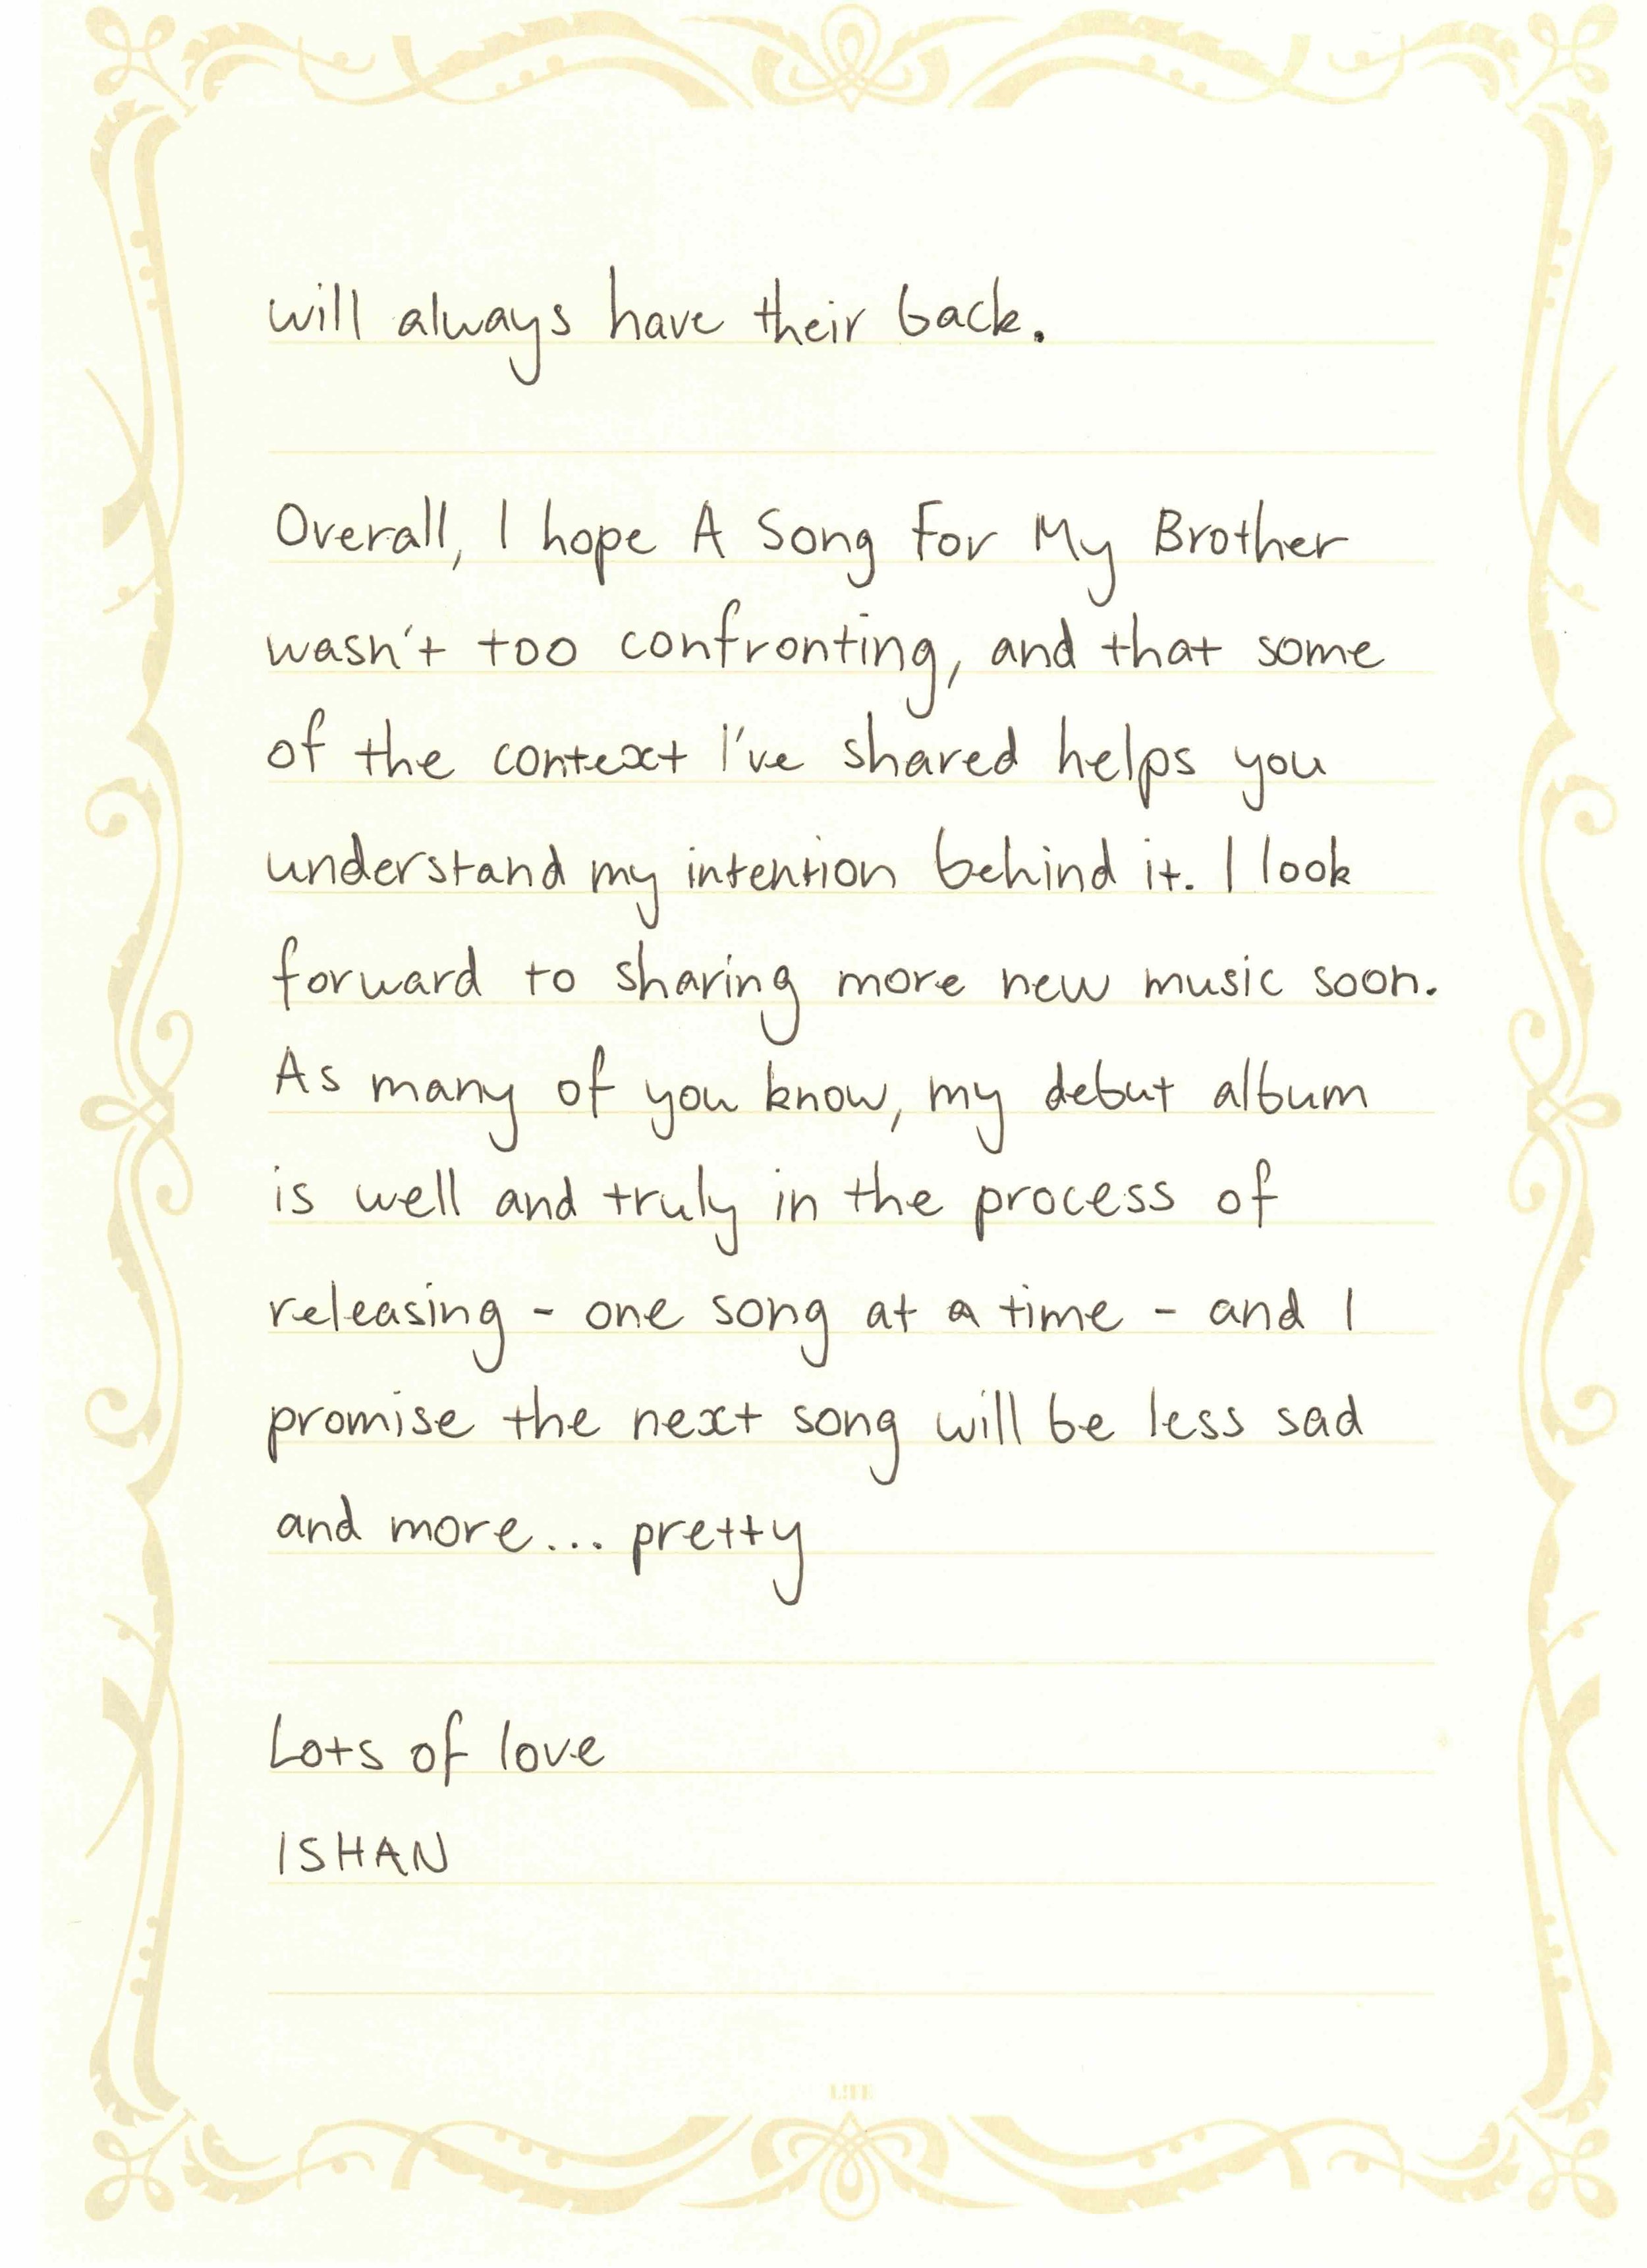 will always have their back.
Overall, I hope A Song For My Brother
wasn't too confronting, and that some
of the context I've shared helps you
understand my intention behind it. I look
forward to sharing more new music soon.
As many of you know, my debut album
is well and truly in the process of
releasing - one song at a time - and I
promise the next song will be less sad
and more... pretty
Lots of love
ISHAN
L!FE